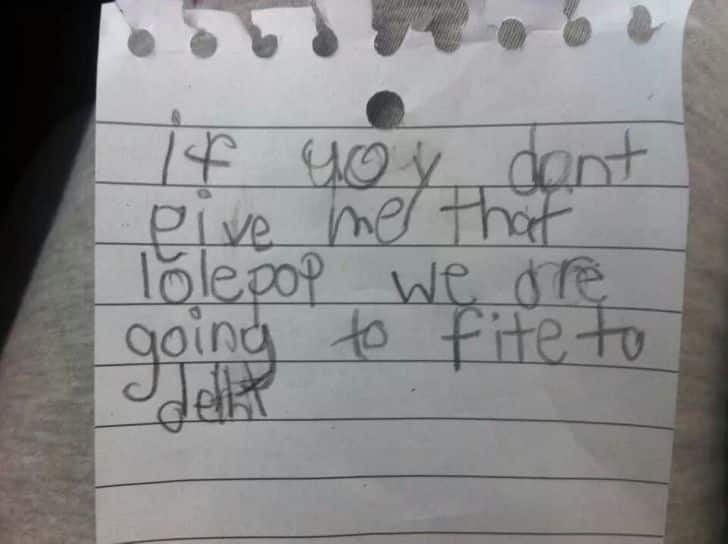 if yoy dont
give me that
lolepop we are
going to fite to
deht